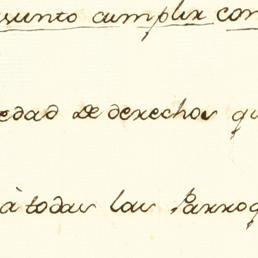 asunto cumplir con
edad de derechos qu
à todas las Parroq